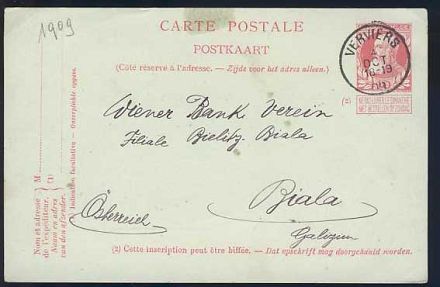 1909
CARTE POSTALE
POSTKAART
(Côté réservé à l'adresse. — Zijde voor het adres alleen.)
VERVIERS
OCT
18-19
(2)
NE PAS LIVRER LE DIMANCHE
NIET BESTELLEN OP ZONDAG
Wiener Bank Verein
Filiale Bielitz-Biala
Biala
Österreich
Galizien
(2) Cette inscription peut être biffée. — Dat opschrift mag doorgehaald worden.
M
(1)
Nom et adresse
de l'expéditeur.
Naam en adres
van den afzender.
(1) Indication facultative — Onverplichte opgave.